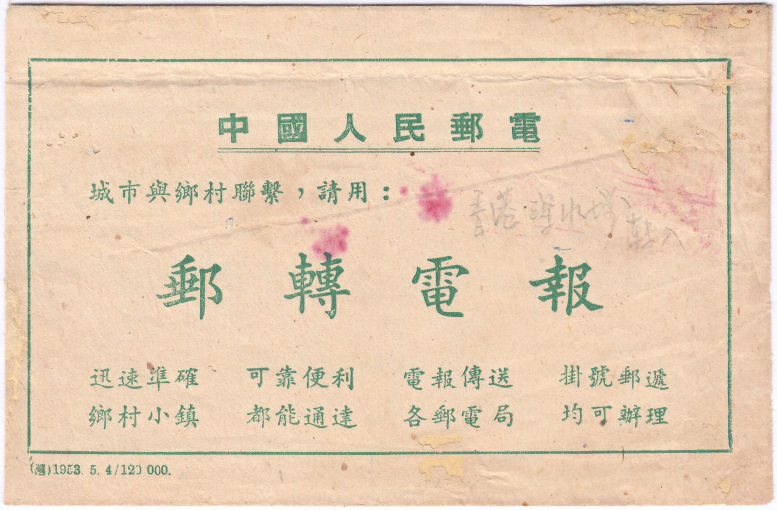 中國人民郵電
城市與鄉村聯繫，請用：
郵轉電報
迅速準確 可靠便利 電報傳送 掛號郵遞
鄉村小鎮 都能通達 各郵電局 均可辦理
1953. 5. 4/120 000.